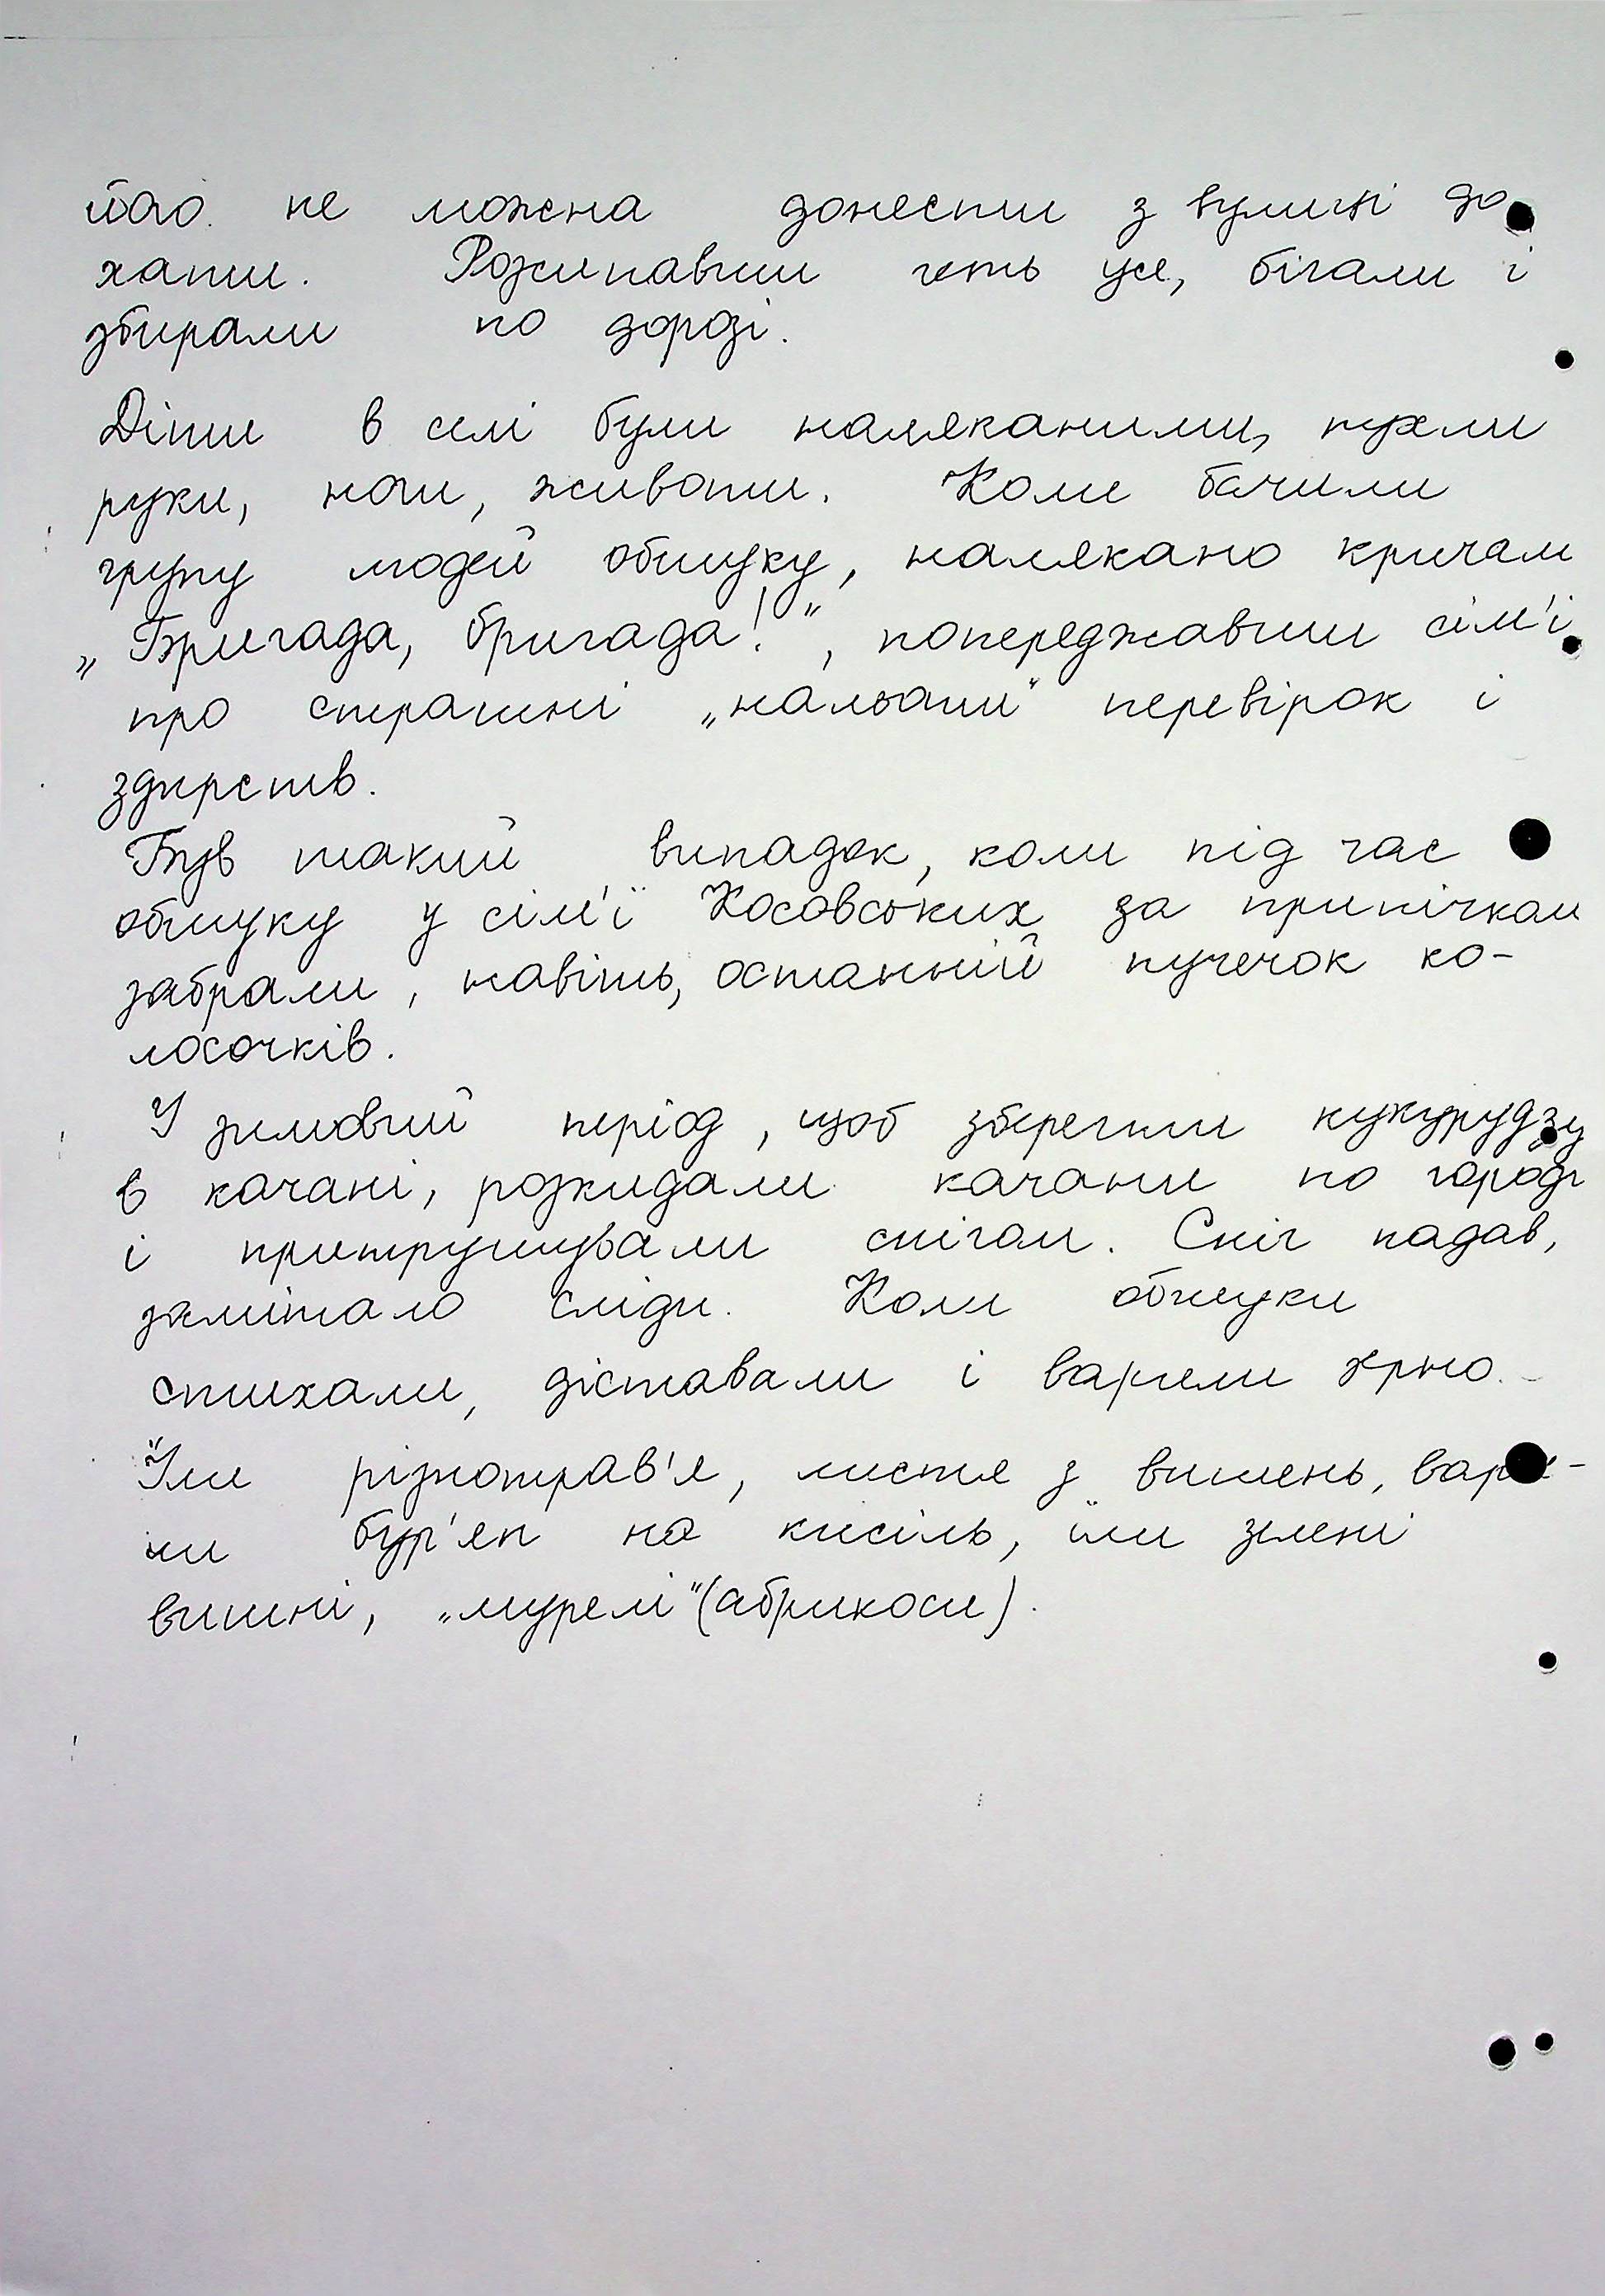 його не можна донести з вулиці до
хати. Розсипавши геть усе, бігали і
збирали по дорозі.
Діти в селі були наляканими, пухли
руки, ноги, животи. Коли бачили
групу людей обшуку, налякано кричали
„Бригада, бригада!", попереджавши сім'ї
про страшні „нальоти" перевірок і
здирств.
Був такий випадок, коли під час
обшуку у сім'ї Косовських за припічком
забрали, навіть, останній пучечок ко-
лосочків.
У зимовий період, щоб зберегти кукурудзу
в качані, розкидали качани по городі
і притрушували снігом. Сніг падав,
замітало сліди. Коли обшуки
стихали, діставали і варили зерно.
Їли різнотрав'я, листя з вишень, вари-
ли бур'ян на кисіль, їли зелені
вишні, „мурелі" (абрикоси).